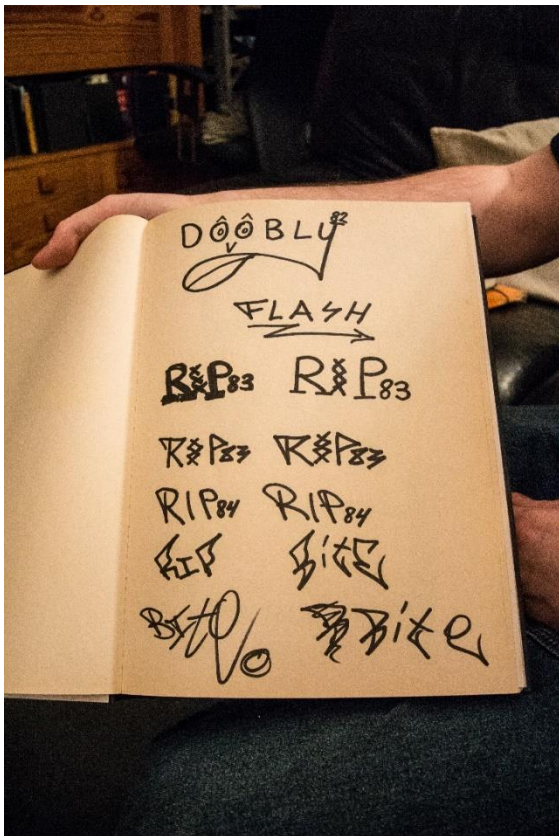 DÔÔBLY 82
FLASH
RIP83 RIP83
RIP83 RIP83
RIP84 RIP84
RIP BitE
BIte Bite